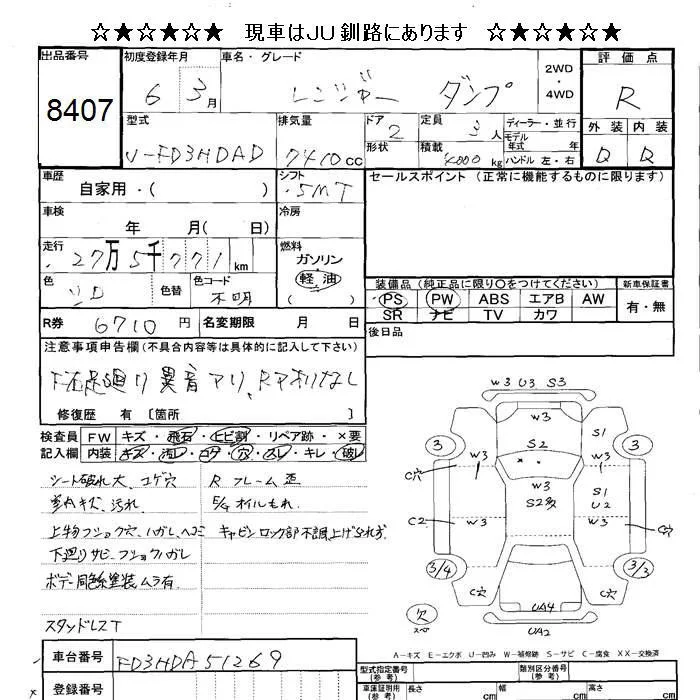 ☆★☆★☆★ 現車はJU釧路にあります ☆★☆★☆★
出品番号
8407
初度登録年月
6 3月
車名・グレード
レンジャー ダンプ
2WD
・
4WD
評価点
R
外装 内装
D D
型式
U-FD3HDAD
排気量
7410cc
ドア
2
形状
定員
3人
積載
4000kg
ディーラー・並行
モデル
年式 年
ハンドル 左・右
車歴
自家用・( )
シフト
5MT
セールスポイント (正常に機能するものに限ります)
車検
年 月( 日)
冷房
走行
27万5千771km
燃料
ガソリン
軽油
( )
色
ソロ
色替
色コード
不明
装備品 (純正品に限り○をつけてください)
PS PW ABS エアB AW
SR ナビ TV カワ
新車保証書
有・無
R券 6710円 名変期限 月 日
後日品
注意事項申告欄 (不具合内容等は具体的に記入して下さい)
下右足廻り異音アリ、Rアオリなし
修復歴 有 〔箇所 〕
検査員 FW キズ・飛石・ヒビ割・リペア跡・×要
記入欄 内装 キズ・汚レ・コゲ・穴・スレ・キレ・破レ
シート破れ大、コゲ穴
室内キズ、汚れ
上物フショク穴、ハガレ、ヘコミ
下廻りサビ、フショクハガレ
ボデー同色系塗装ムラ有
スタッドレスT
Rフレーム歪
E/gオイルもれ
キャビンロック部不調、上げられず
W3 U3 S3
W3
S2
S1
3 3
W3 W3
C穴
W3
S2多
S1
U2
C2 W3 W3
C穴
3/4 3/3
C穴 C穴
UA4
UA2
欠
スペ
A-キズ E-エクボ U-凹み W-補修跡 S-サビ C-腐食 XX-交換済
車台番号
FD3HDA51269
登録番号
型式指定番号
(参考)
類別区分番号
(参考)
車庫証明用
(参考)
長さ cm 幅 cm 高さ cm